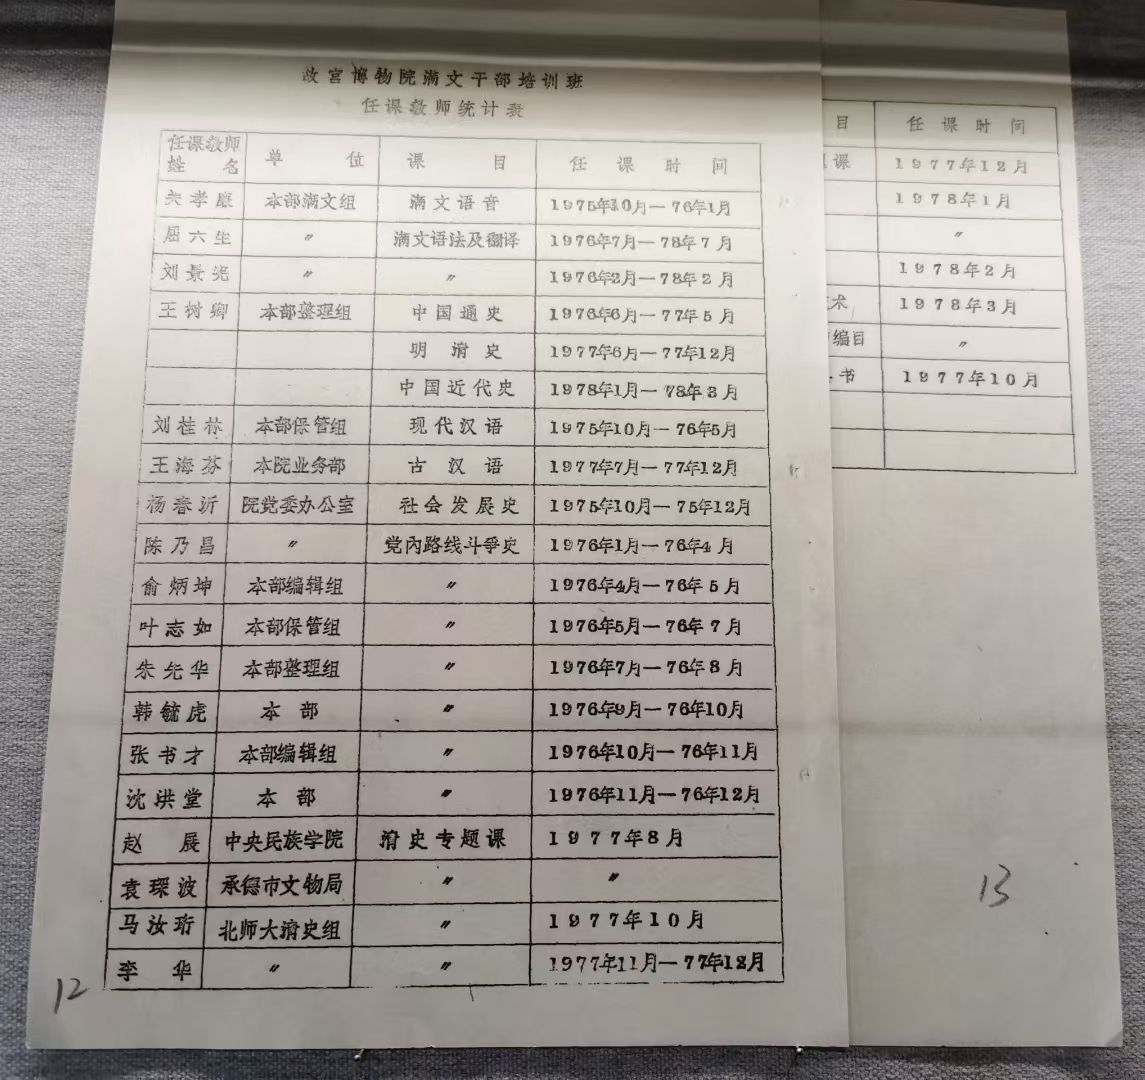 故宫博物院满文干部培训班
任课教师统计表
任课教师姓名 单位 课目 任课时间
关孝廉 本部满文组 满文语音 1975年10月—76年1月
屈六生 〃 满文语法及翻译 1976年7月—78年7月
刘景宪 〃 〃 1976年2月—78年2月
王树卿 本部整理组 中国通史 1976年6月—77年5月
明清史 1977年6月—77年12月
中国近代史 1978年1月—78年3月
刘桂林 本部保管组 现代汉语 1975年10月—76年5月
王海芬 本院业务部 古汉语 1977年7月—77年12月
杨春沂 院党委办公室 社会发展史 1975年10月—75年12月
陈乃昌 〃 党内路线斗争史 1976年1月—76年4月
俞炳坤 本部编辑组 〃 1976年4月—76年5月
叶志如 本部保管组 〃 1976年5月—76年7月
朱先华 本部整理组 〃 1976年7月—76年8月
韩毓虎 本部 〃 1976年9月—76年10月
张书才 本部编辑组 〃 1976年10月—76年11月
沈洪堂 本部 〃 1976年11月—76年12月
赵展 中央民族学院 清史专题课 1977年8月
袁琛波 承德市文物局 〃 〃
马汝珩 北师大清史组 〃 1977年10月
李华 〃 〃 1977年11月—77年12月
12
目 任课时间
课 1977年12月
1978年1月
〃
1978年2月
术 1978年3月
编目 〃
书 1977年10月
13